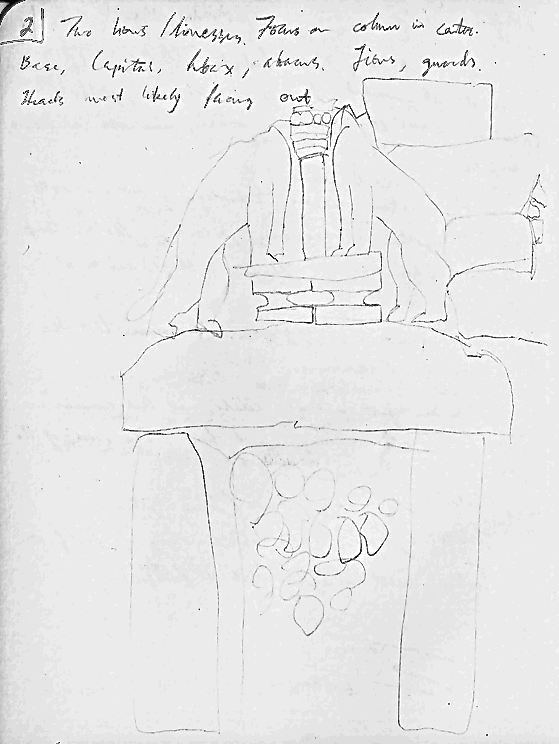 2 Two lions / lionesses. Focus on column in center.
Base, Capital, abacus. Lions, guards.
Heads most likely facing out